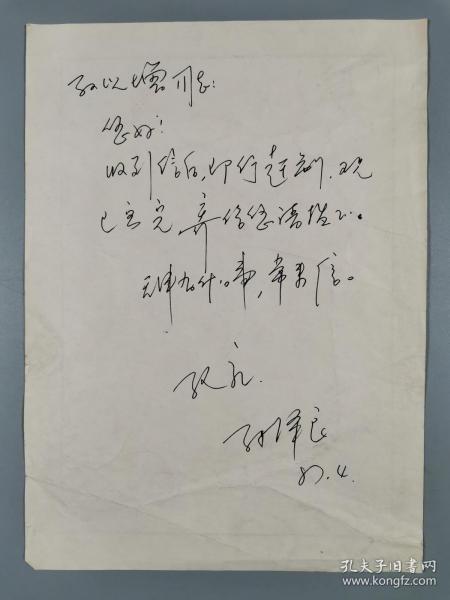 孙以增同志：
您好！
收到信后，即行赶制，现
已刻完，寄给您请指正。
天津有什么事，常来信。
致礼
孙泽良
87.4.
孔夫子旧书网
www.kongfz.com